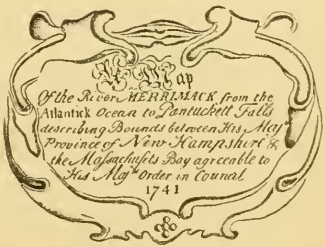 A Map
Of the River MERRIMACK from the
Atlantick Ocean to Pantuckett Falls
describing Bounds between His Majtys
Province of New Hampshire &
the Massachusets Bay agreeable to
His Majtys Order in Council
1741